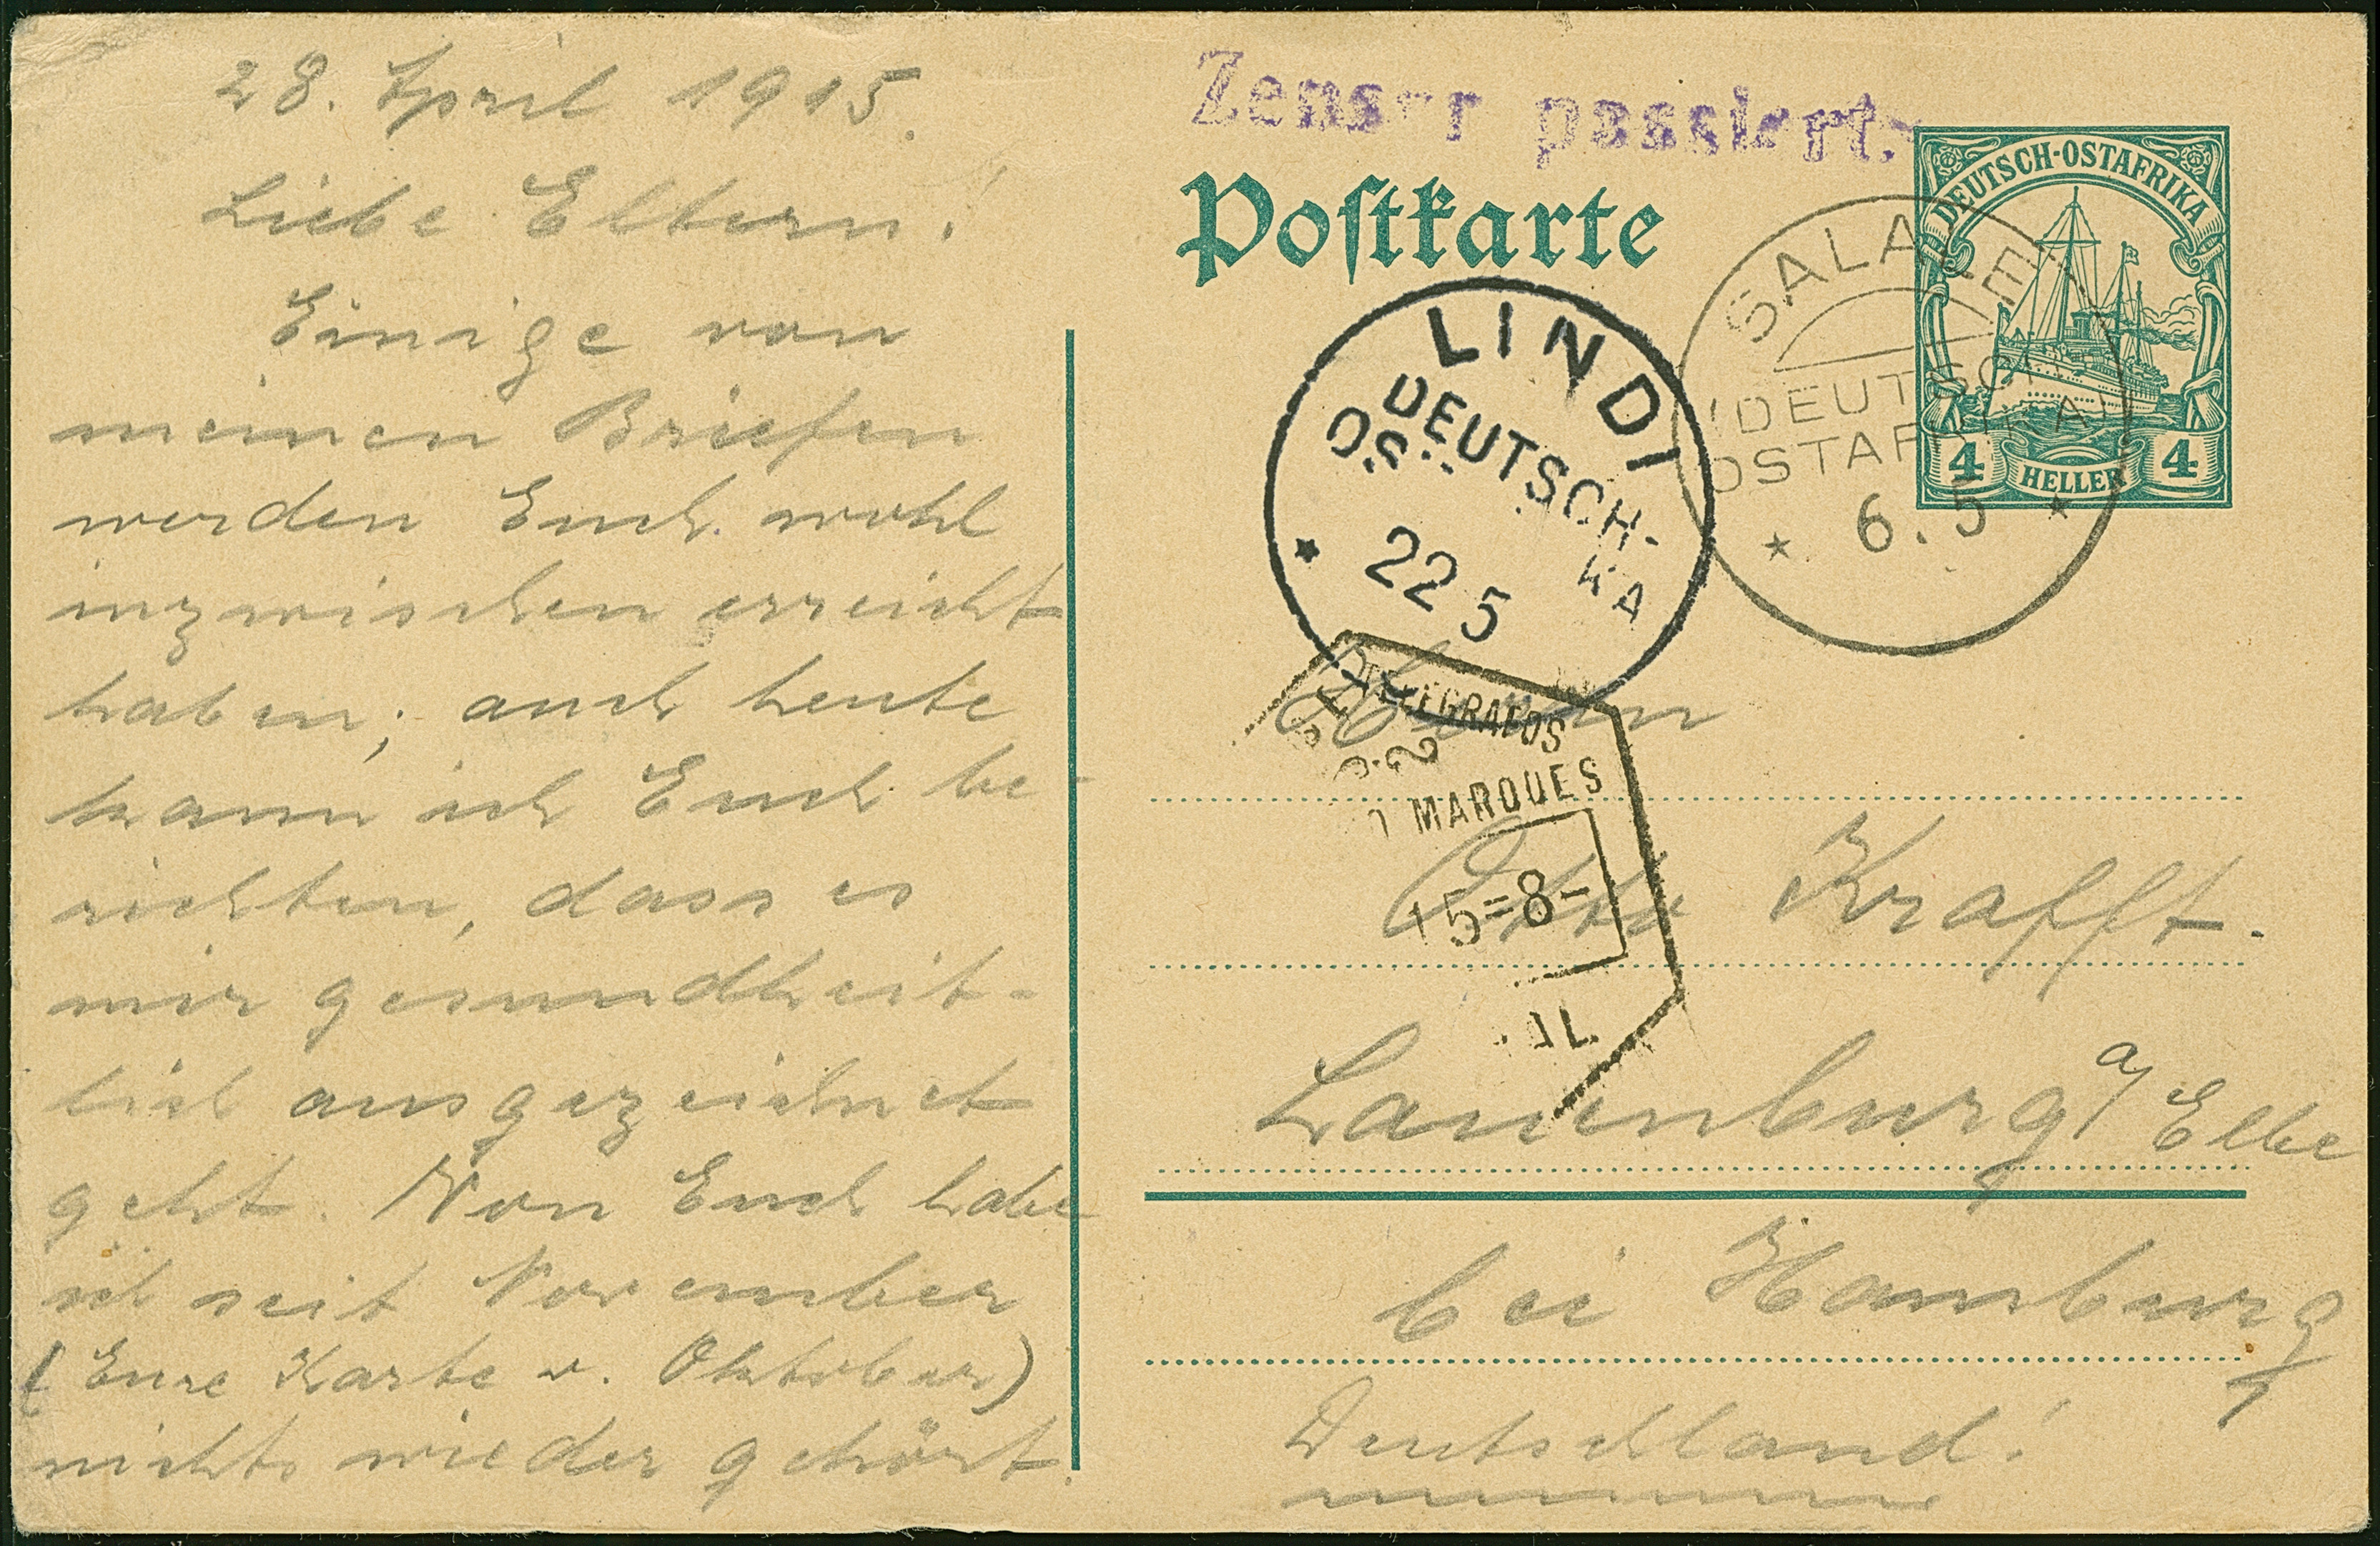 28. April 1915.
Liebe Eltern!
Einige von
meinen Briefen
werden Euch wohl
inzwischen erreicht
haben; auch heute
kann ich Euch be-
richten, dass es
mir gesundheit-
lich ausgezeichnet
geht. Von Euch habe
ich seit November
(Eure Karte v. Oktober)
nichts wieder gehört.
Zensur passiert.
Postkarte
DEUTSCH-OSTAFRIKA
4 HELLER 4
SALALE
(DEUTSCH
OSTAFRIKA)
* 6.5 *
LINDI
DEUTSCH-
OS KA
* 22 5
TELEGRAFOS
MARQUES
15=8-
Herrn
Otto Krafft.
Lauenburg a/ Elbe
bei Hamburg
Deutschland!